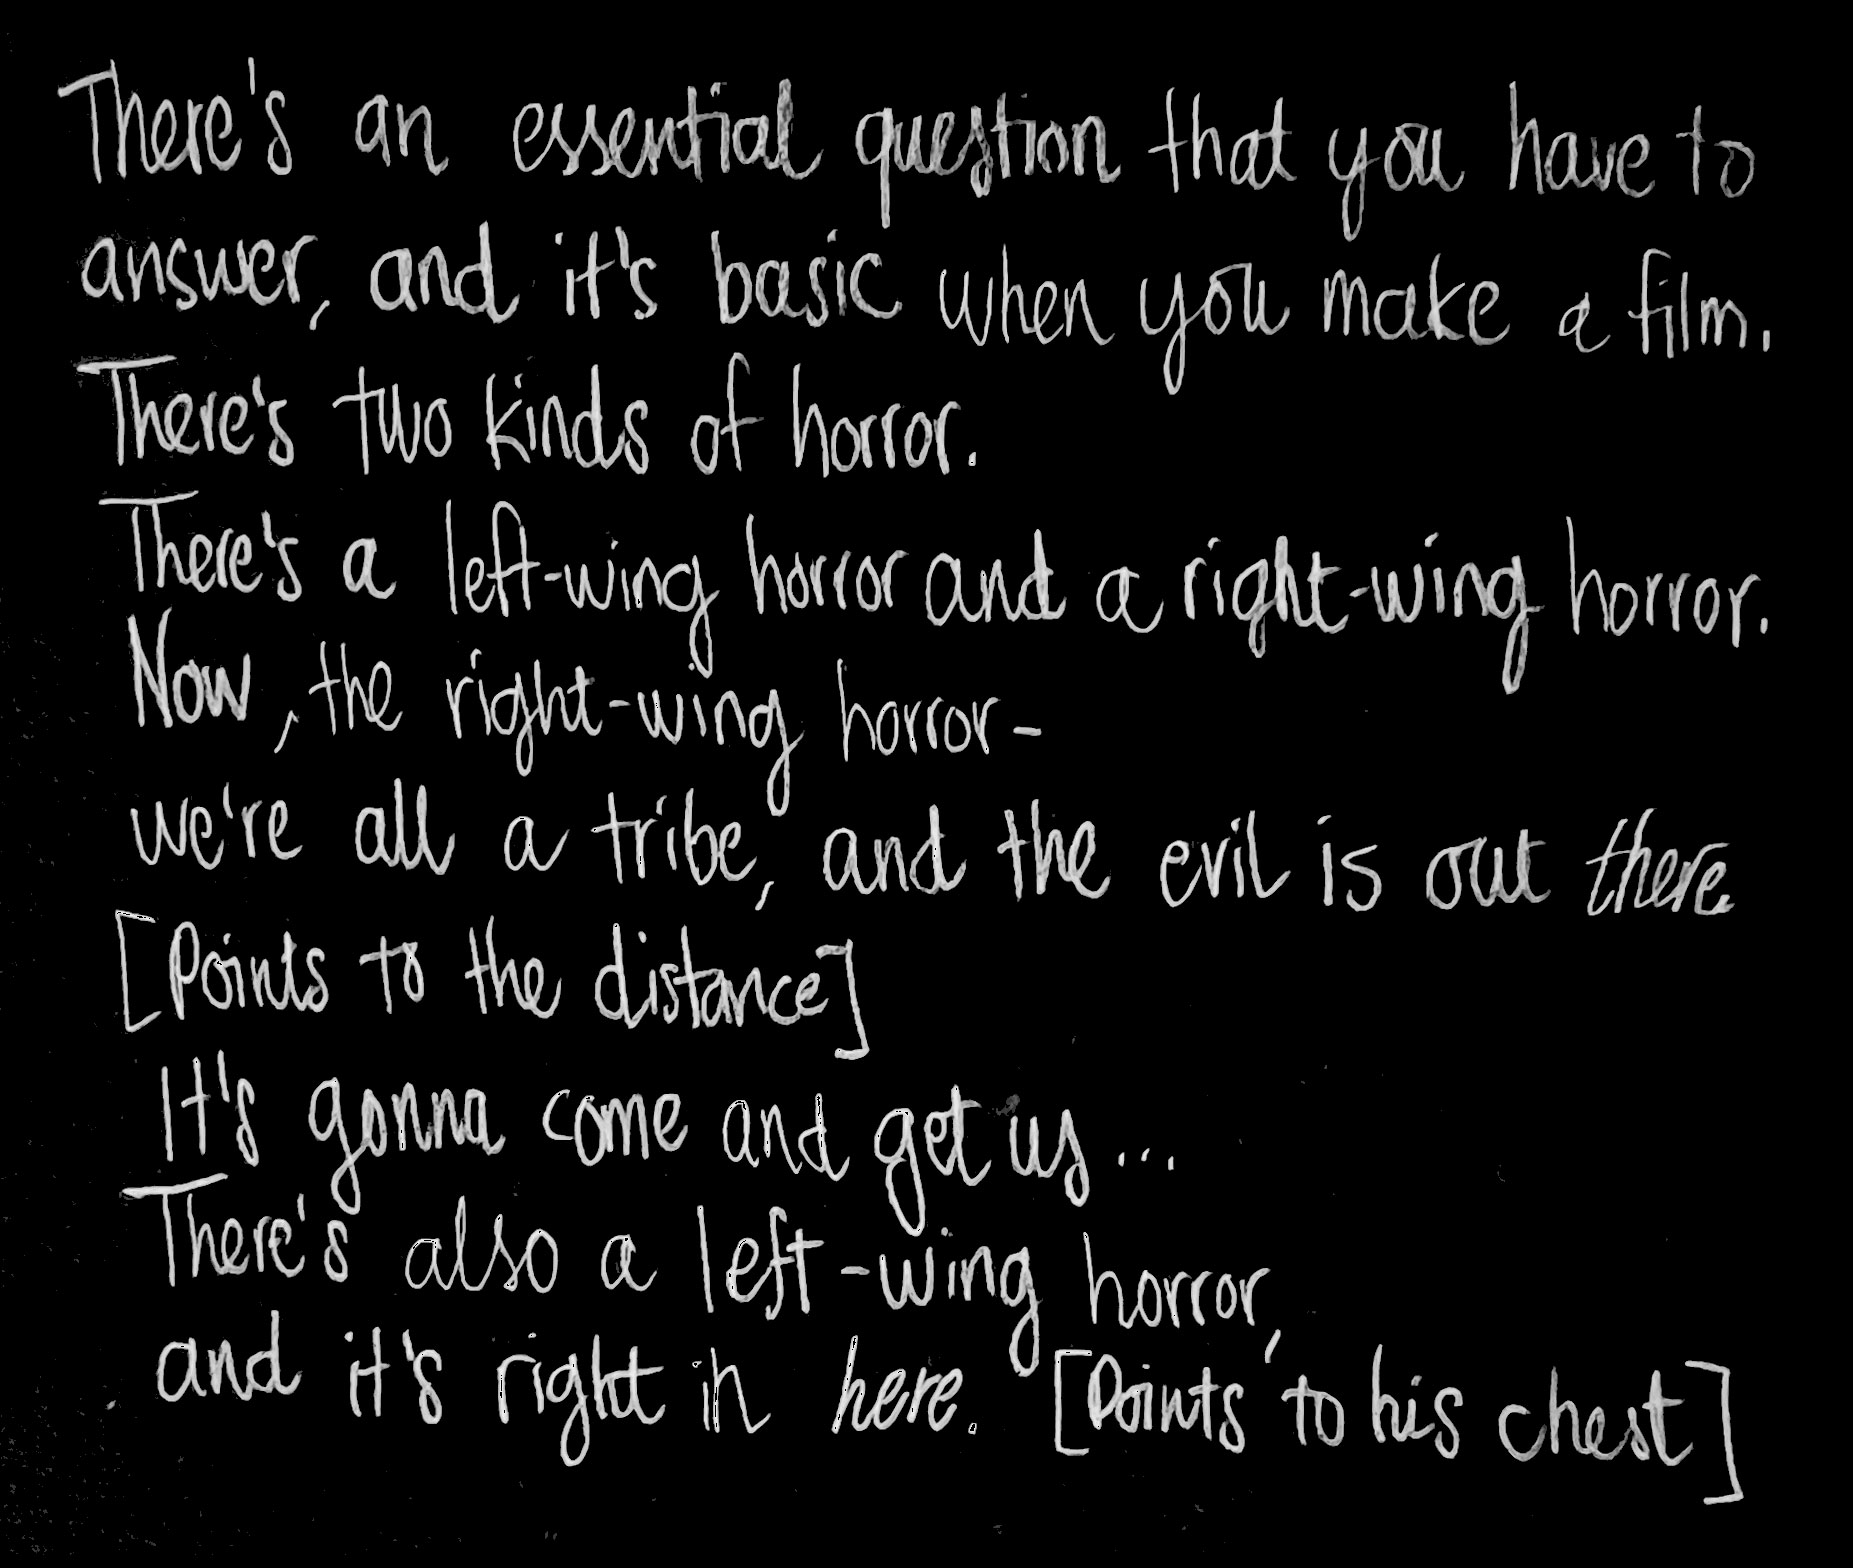 There's an essential question that you have to
answer, and it's basic when you make a film.
There's two kinds of horror.
There's a left-wing horror and a right-wing horror.
Now, the right-wing horror-
we're all a tribe, and the evil is out there
[Points to the distance]
It's gonna come and get us...
There's also a left-wing horror,
and it's right in here. [Points to his chest]